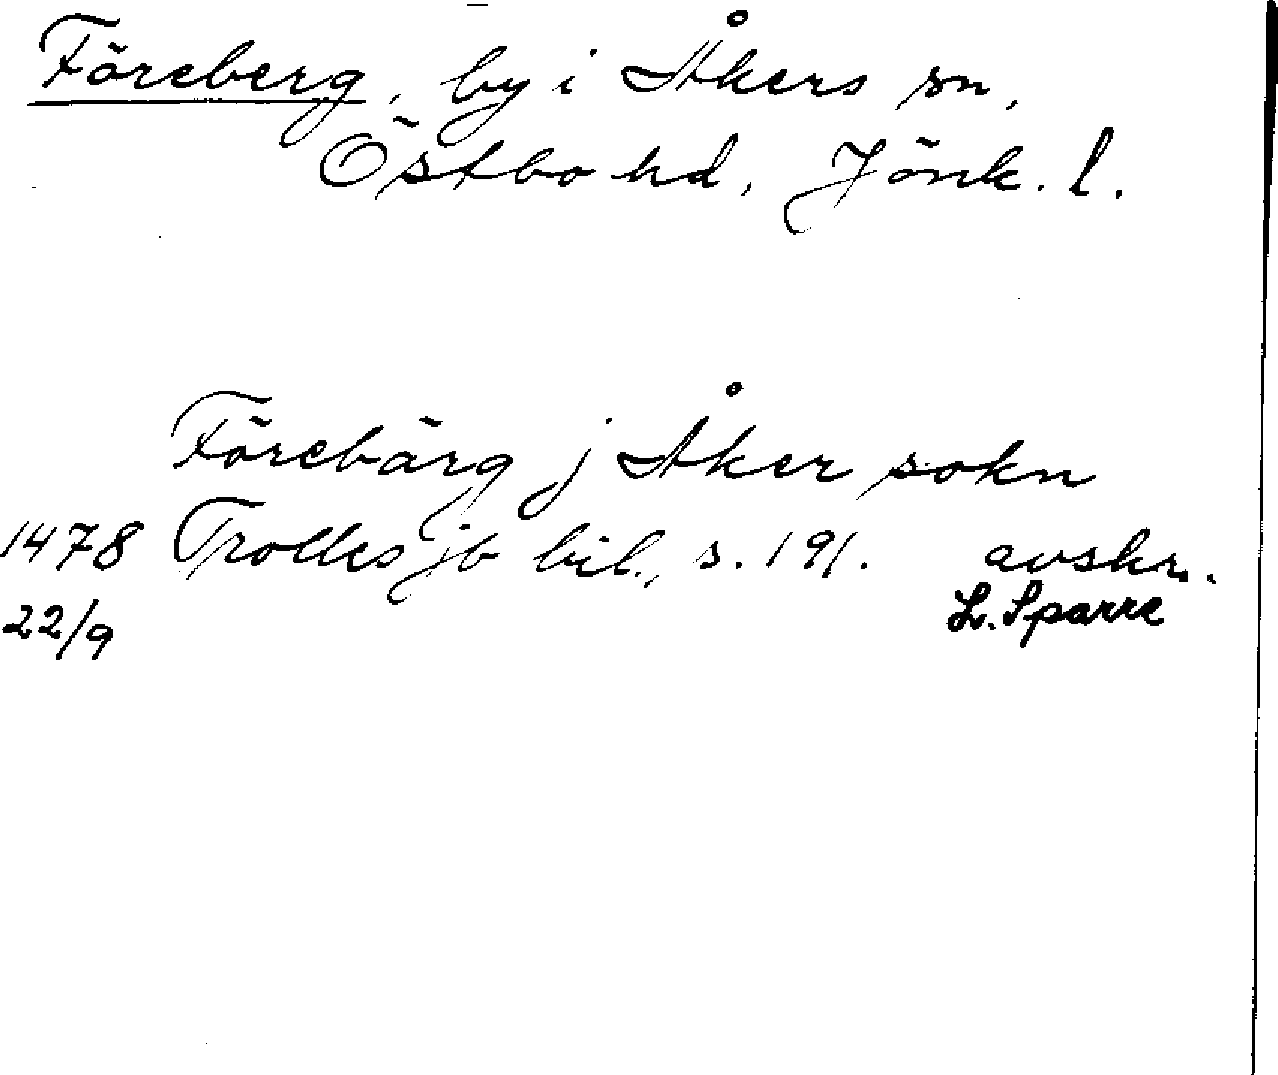 Föreberg, by i Åkers sn,
Östbo hd, Jönk. l.
Förebärg j Åker sokn
1478 Trolles jb bil., s. 191. avskr.
22/9 L. Sparre